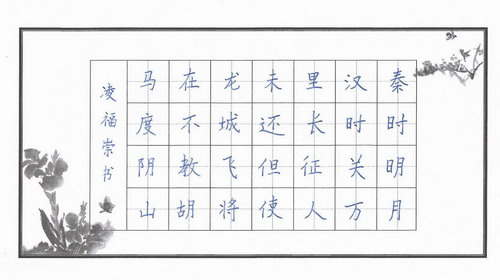 秦时明月
汉时关万
里长征人
未还但使
龙城飞将
在不教胡
马度阴山
凌福崇书